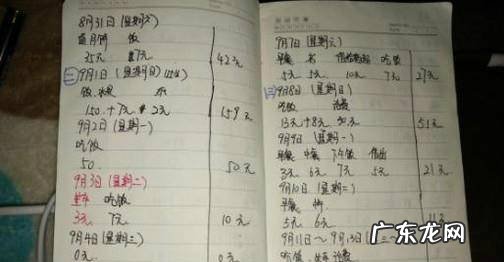 8月31日(星期六)
月饼 饭
35元 7元 42元
9月1日(星期日)
150+7元 2元 159元
9月2日(星期一)
吃饭
50 50元
9月3日(星期二)
吃饭
3元 7元 10元
9月4日(星期三)
0元 0元
9月7日(星期六)
早餐 吃饭
5元 5元 10元 7元 27元
9月8日(星期日)
吃饭 话费
13元+8元 51元
9月9日(星期一)
早餐 中餐 下午饭
3元 6元 7元 5元 21元
9月10日(星期二)
早餐
5元 6元 11元
9月11日~9月13日(三~
吃饭 话费
广东龙网